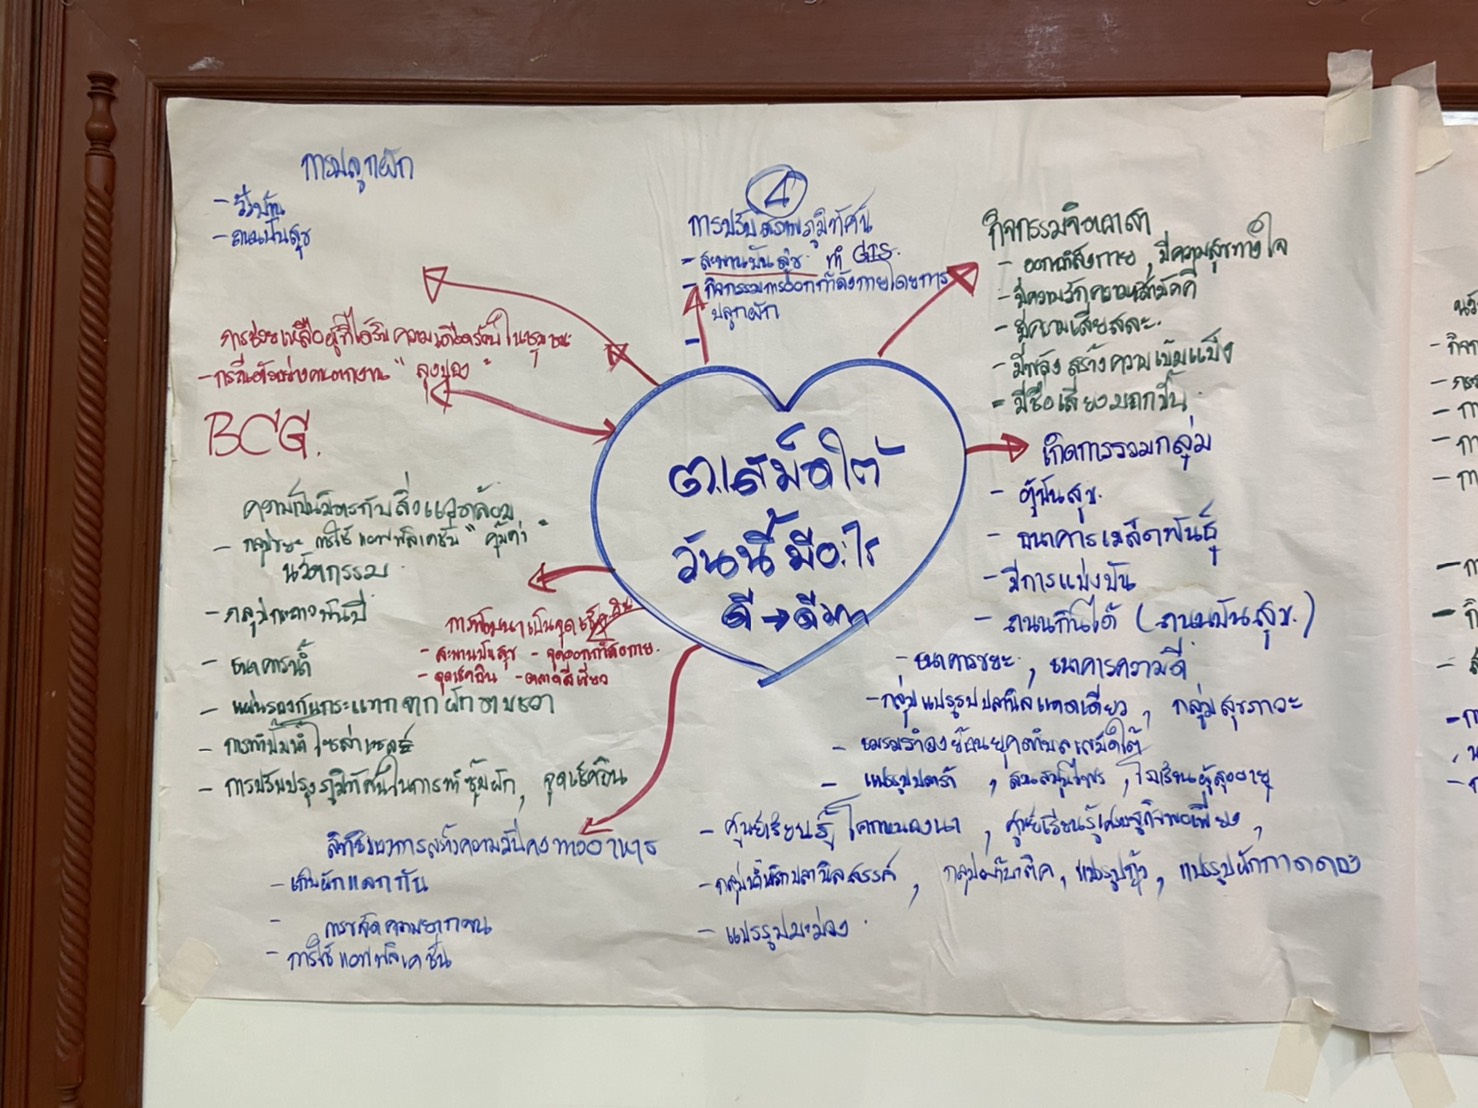 การปลูกผัก
- รั้วบ้าน
- ถนนปันสุข
4
การปรับสภาพภูมิทัศน์
- สะพานปันสุข ทำ GIS.
- กิจกรรมการออกกำลังกายโดยการ
ปลูกผัก
-
กิจกรรมจิตอาสา
- ออกกำลังกาย, มีความสุขทางใจ
- มีความรักความสามัคคี
- มีความเสียสละ.
- มีพลังสร้างความเข้มแข็ง
- มีชื่อเสียงมากขึ้น.
การช่วยเหลือผู้ที่ได้รับความเดือดร้อนในชุมชน
- กรณีตัวอย่างคนตกงาน "ลุงปูอง"
BCG.
ต.เสม็ดใต้
วันนี้มีอะไร
ดี→ดีมาก
เกิดการรวมกลุ่ม
- ตู้ปันสุข.
- ธนาคารเมล็ดพันธุ์
- มีการแบ่งปัน
- ถนนกินได้ (ถนนปันสุข.)
- ธนาคารขยะ, ธนาคารความดี
- กลุ่มแปรรูปปลานิลแดดเดียว, กลุ่มสุขภาวะ
- ชมรมรำวงย้อนยุคตำบลเสม็ดใต้
- แปรรูปปลาร้า, สมุนไพร, โรงเรียนผู้สูงอายุ
- ศูนย์เรียนรู้โคกหนองนา, ศูนย์เรียนรู้เศรษฐกิจพอเพียง,
- กลุ่มน้ำพริกปลานิลสวรรค์, กลุ่มผ้าบาติค, แปรรูปกุ้ง, แปรรูปผักกาดดอง
- แปรรูปมะม่วง.
ความเป็นมิตรกับสิ่งแวดล้อม
- กลุ่มขยะ การใช้แอพพลิเคชั่น "คุ้มค่า"
นวัตกรรม
- กลุ่มกะลาพันปี
- ธนาคารน้ำ
- แผ่นรองกันกระแทกจากผักตบชวา
- การทำปั๊มน้ำโซล่าเซลล์
- การปรับปรุงภูมิทัศน์ในการทำซุ้มผัก, จุดเช็คอิน
การพัฒนาเป็นจุดเช็คอิน
- สะพานปันสุข - จุดออกกำลังกาย.
- จุดเช็คอิน - ตลาดสีเขียว
การสร้างความมั่นคงทางอาหาร
- เก็บผักแลกกัน
- การขจัดความยากจน
- การใช้แอพพลิเคชั่น